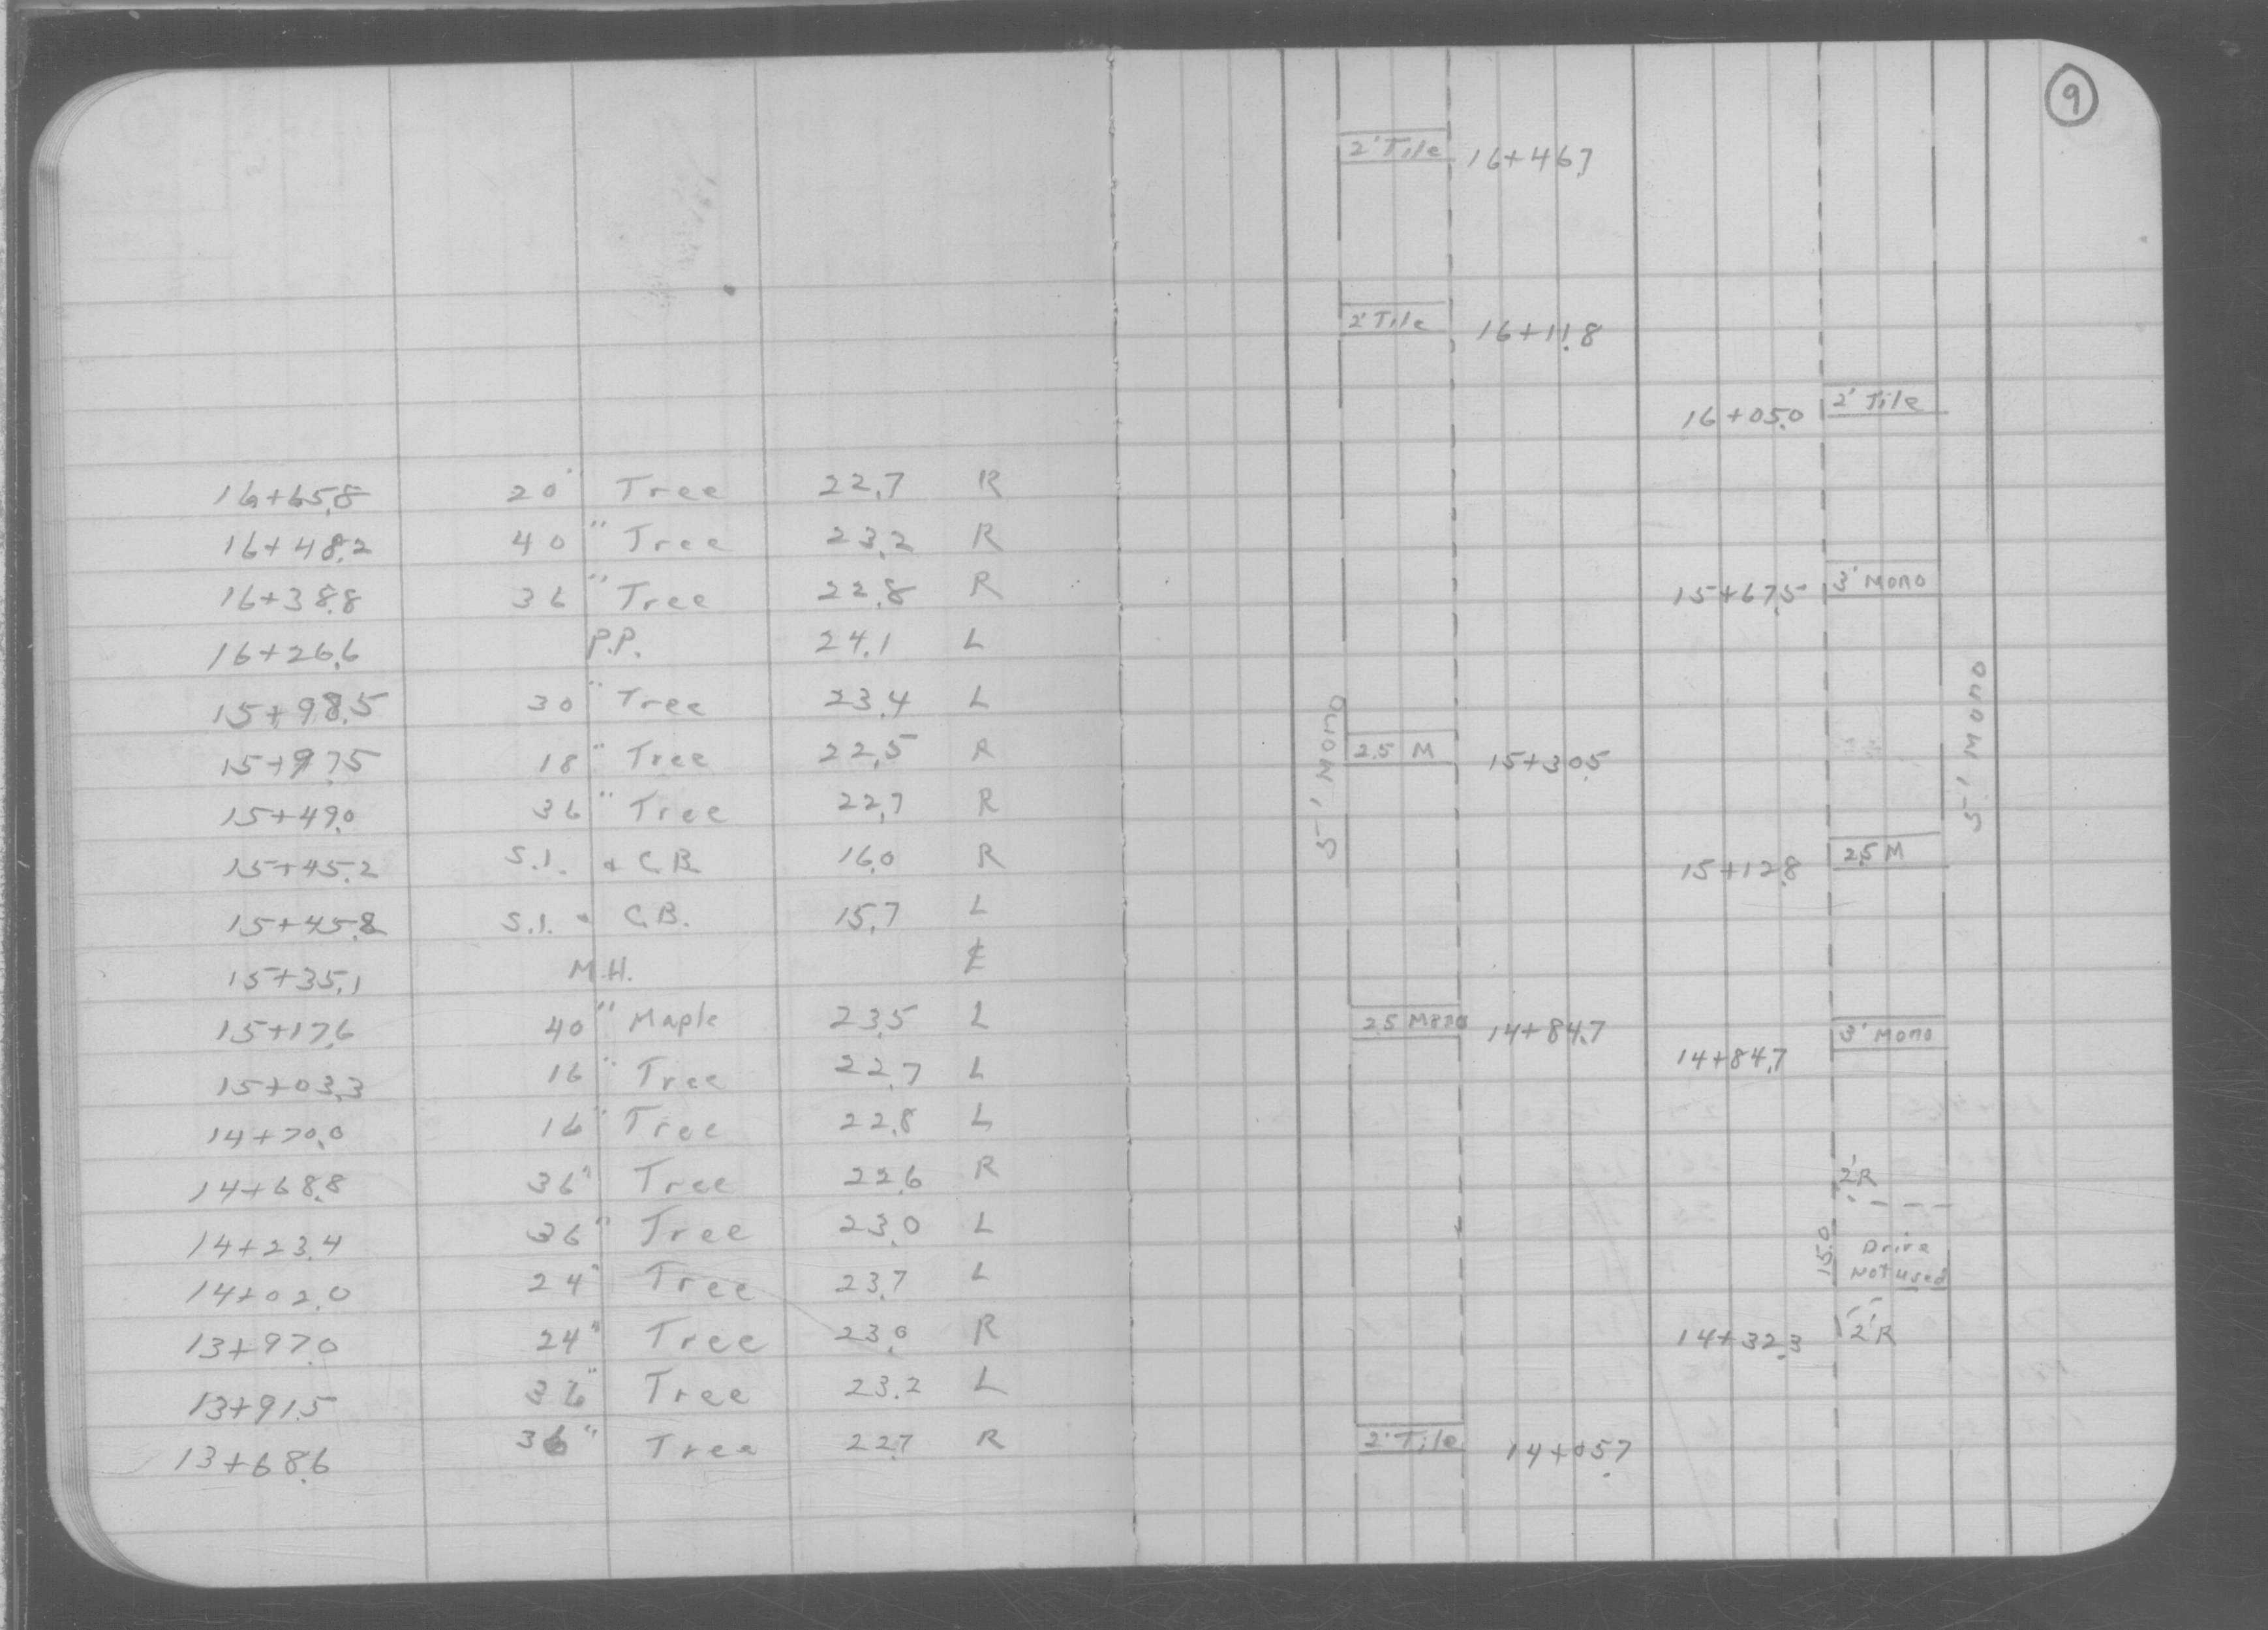 16+65.8 20" Tree 22.7 R
16+48.2 40" Tree 23.2 R
16+38.8 36" Tree 22.8 R
16+26.6 P.P. 24.1 L
15+98.5 30" Tree 23.4 L
15+97.5 18" Tree 22.5 R
15+49.0 36" Tree 22.7 R
15+45.2 S.I. & C.B. 16.0 R
15+45.8 S.I. & C.B. 15.7 L
15+35.1 M.H. ℄
15+17.6 40" Maple 23.5 L
15+03.3 16" Tree 22.7 L
14+70.0 16" Tree 22.8 L
14+68.8 36" Tree 22.6 R
14+23.4 36" Tree 23.0 L
14+02.0 24" Tree 23.7 L
13+97.0 24" Tree 23.0 R
13+91.5 36" Tree 23.2 L
13+68.6 36" Tree 22.7 R
9
2' Tile 16+46.7
2' Tile 16+11.8
16+05.0 2' Tile
15+67.5 3' Mono
5' Mono
5' Mono
2.5 M 15+30.5
15+12.8 2.5 M
2.5 Mono 14+84.7
14+84.7 3' Mono
2'R
15.0
Drive
Not used
14+32.3 2'R
2' Tile 14+05.7